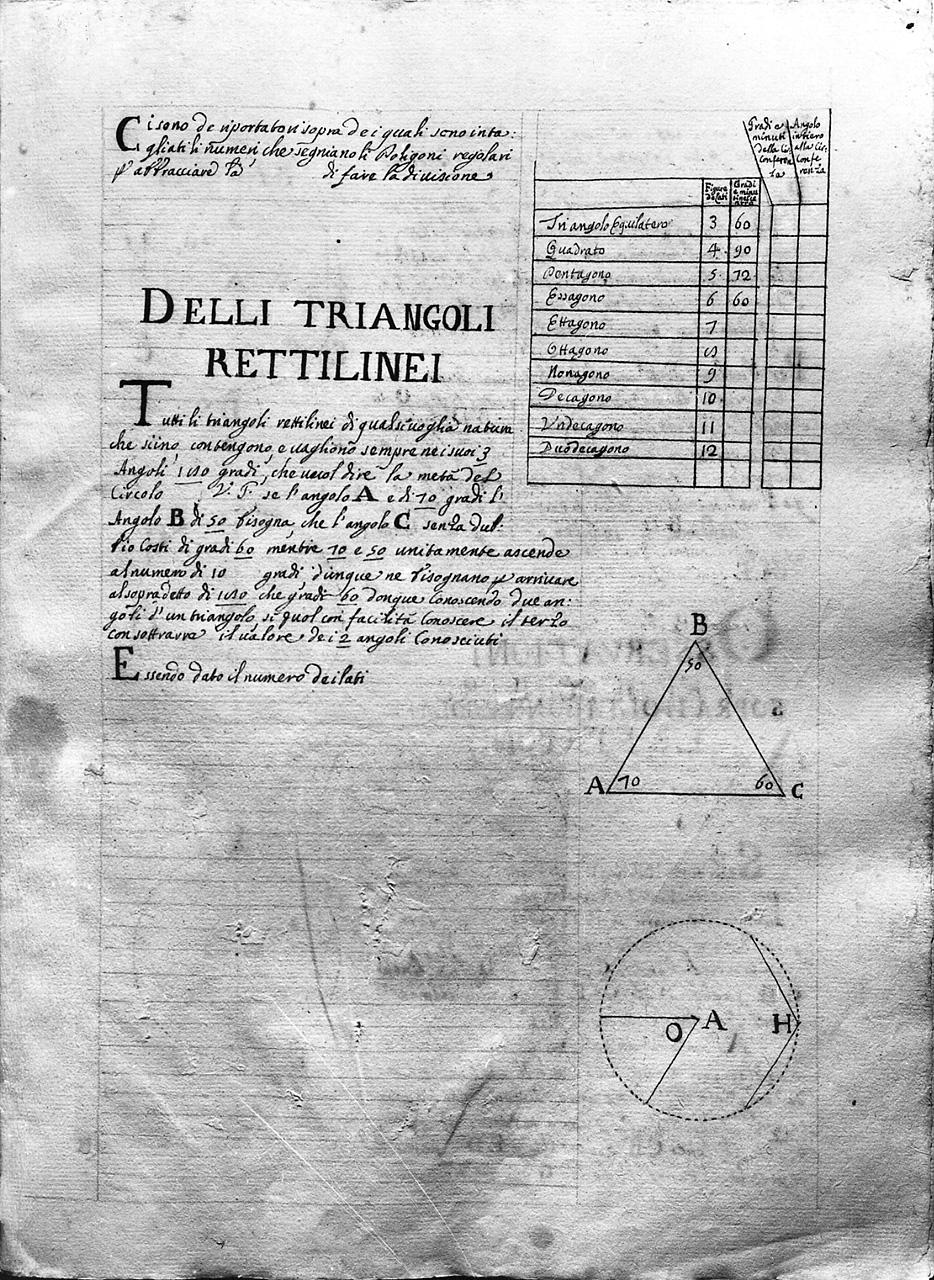 Ci sono de riportatori sopra de i quali sono inta:
gliati li numeri che segniano li Poligoni regolari
p abbracciare la di fare la divisione
DELLI TRIANGOLI
RETTILINEI
Tutti li triangoli rettilinei di qualsivoglia natura
che siino, contengono, e vagliono sempre nei suoi 3
Angoli 180 gradi, che vuol dire la metà del
Circolo V. G. se l'angolo A e di 70 gradi l'
Angolo B di 50 bisogna che l'angolo C senza dub:
bio costi di gradi 60 mentre 70 e 50 unitamente ascende
al numero di 10 gradi dunque ne bisognano p arrivare
al sopradetto di 180 che gradi 60 donque conoscendo due an:
goli d'un triangolo si puol con facilità conoscere il terzo
con sottrarre il valore de i 2 angoli conosciuti
Essendo dato il numero de i lati
Gradi e minuti della Circonferenza
Angolo intiero alla Circonferenza
Figure de lati
Gradi e minuti
Triangolo Equilatero 3 60
Quadrato 4 90
Pentagono 5 72
Essagono 6 60
Ettagono 7
Ottagono 8
Nonagono 9
Decagono 10
Undecagono 11
Duodecagono 12
B
50
A 70 60 C
O A H